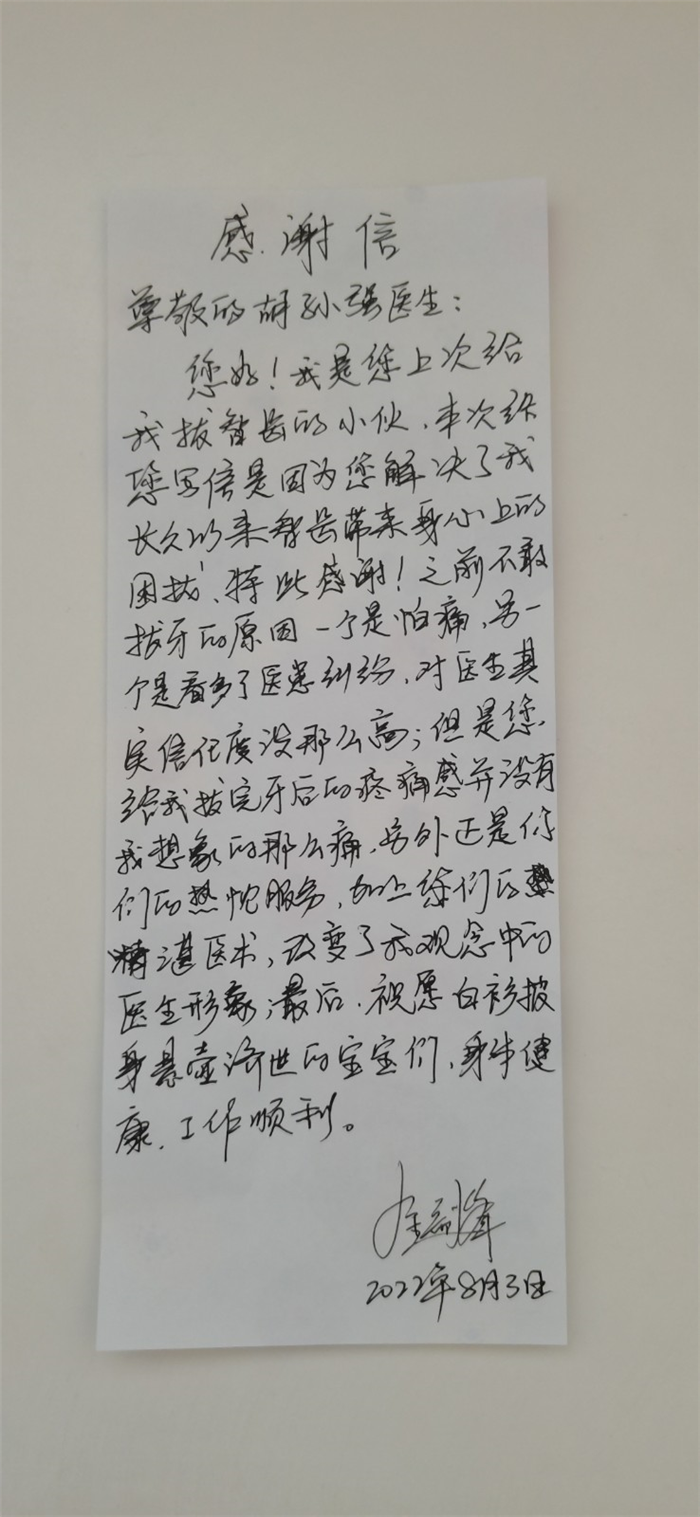 感谢信
尊敬的胡孙强医生：
您好！我是您上次给
我拔智齿的小伙，本次给
您写信是因为您解决了我
长久以来智齿带来身心上的
困扰、特此感谢！之前不敢
拔牙的原因一个是怕痛，另一
个是看多了医患纠纷，对医生其
实信任度没那么高；但是您
给我拔完牙后的疼痛感并没有
我想象的那么痛，另外还是你
们的热忱服务，加上您们的
精湛医术，改变了我观念中的
医生形象；最后，祝愿白衫披
身悬壶济世的宝宝们，身体健
康、工作顺利。
2022年8月3日